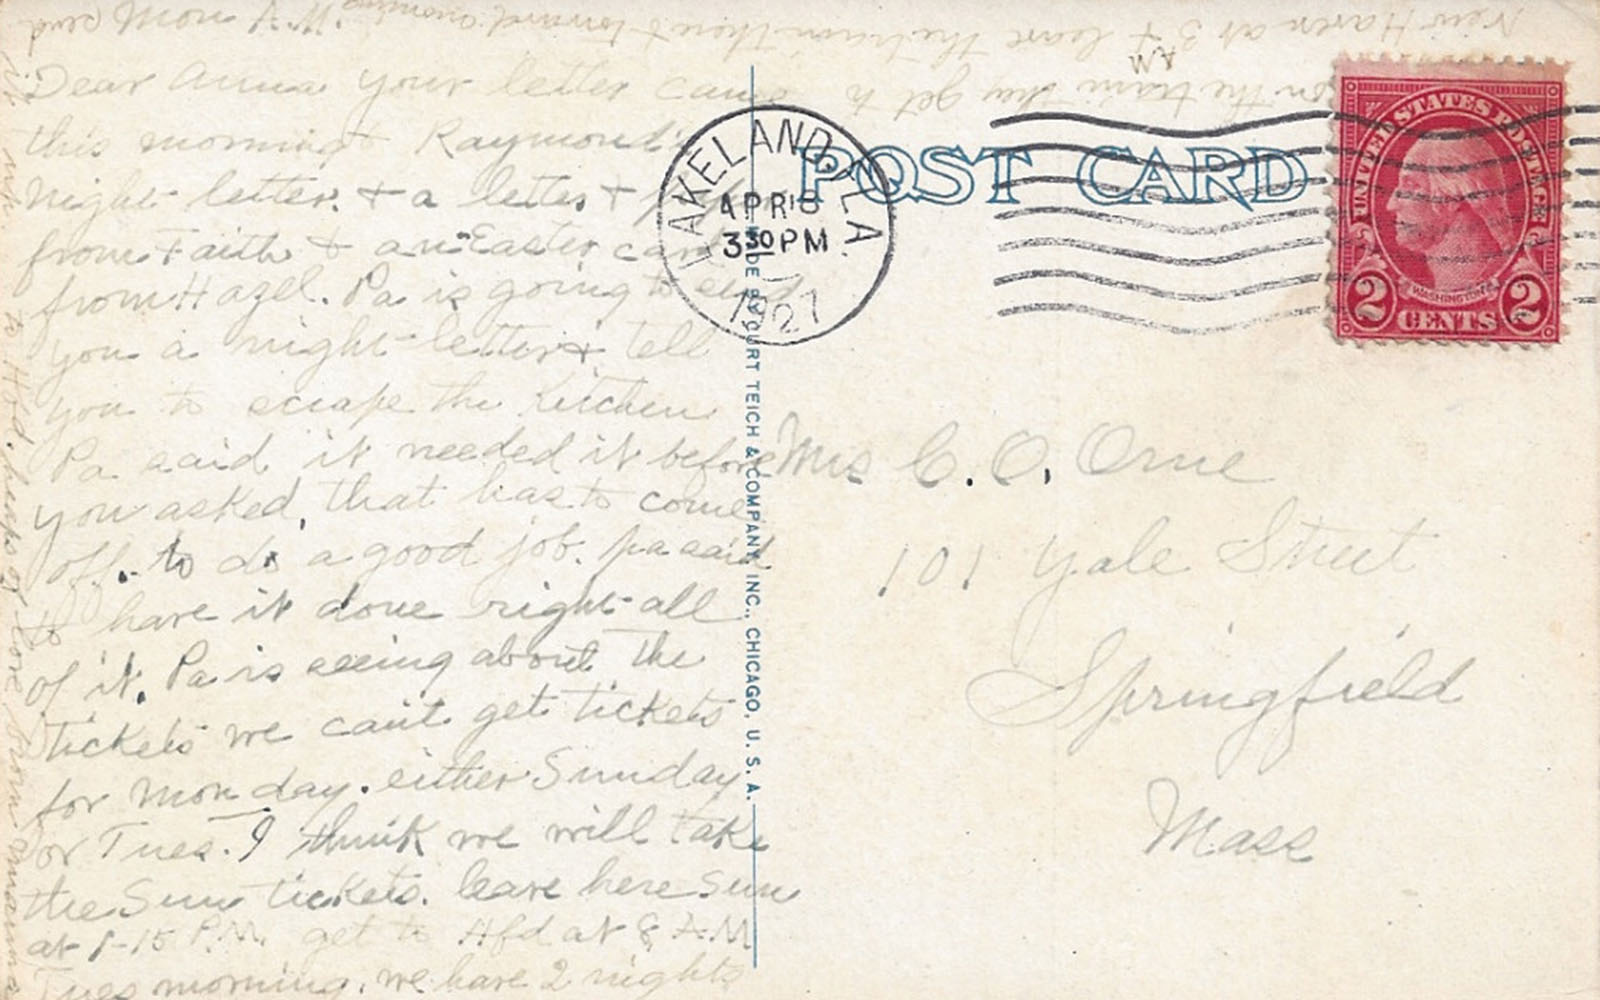 Dear Anna your letter came
this morning & Raymond's
night letter. & a letter &
from Faith & an Easter card
from Hazel. Pa is going to send
you a night letter & tell
you to scrape the kitchen
Pa said it needed it before
you asked, that has to come
off. to do a good job. pa said
to have it done right all
of it. Pa is seeing about the
tickets we can't get tickets
for Monday. either Sunday
or Tues. I think we will take
the Sun tickets. leave here Sun
at 1-15 P.M. get to Hfd at 8 A.M
Tues morning. we have 2 nights
on the train they get to
New Haven at 3 & leave the train there &
Mon
to Hfd. heaps of love from Mama
LAKELAND, FLA.
APR 8
3 30 PM
1927
POST CARD
UNITED STATES POSTAGE
WASHINGTON
2 CENTS 2
MADE BY CURT TEICH & COMPANY, INC., CHICAGO, U. S. A.
Mrs C. O. Orne
101 Yale Street
Springfield
Mass